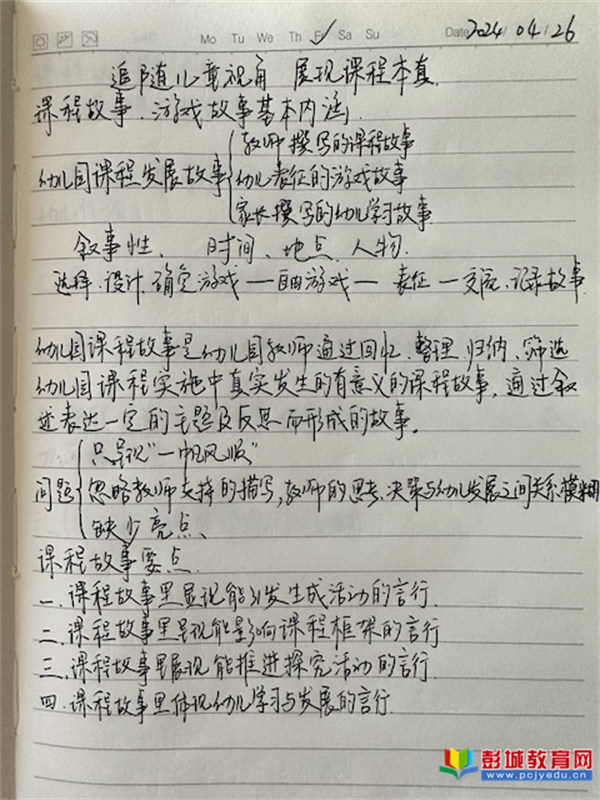 Mo Tu We Th Fr Sa Su Date 2024/04/26
追随儿童视角 展现课程本真.
课程故事.游戏故事基本内涵
教师撰写的课程故事
幼儿园课程发展故事 幼儿表征的游戏故事
家长撰写的幼儿学习故事
叙事性、 时间、地点、人物.
选择.设计.确定游戏—自由游戏— 表征 —交流.记录故事
幼儿园课程故事是幼儿园教师通过回忆.整理.归纳、筛选
幼儿园课程实施中真实发生的有意义的课程故事,通过叙
述表达一定的主题及反思而形成的故事。
只呈现"一帆风顺"
问题 忽略教师支持的描写,教师的思考、决策与幼儿发展之间关系模糊
缺少亮点、
课程故事要点
一.课程故事里显现能引发生成活动的言行.
二.课程故事里呈现能影响课程框架的言行
三.课程故事里展现能推进探究活动的言行.
四.课程故事里体现幼儿学习与发展的言行.
彭城教育网
www.pcjyedu.cn